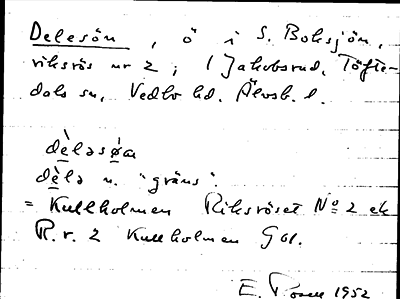 Delesön, ö i S. Boksjön,
riksrös nr 2, i Jakobsrud, Töfte-
dals sn, Vedbo hd. Älvsb. l.
dè̱ləsǿ̱a
dè̱lə n. "gräns".
= Kullholmen Riksröset No 2 ek
R.r. 2 Kullholmen G ol.
E. 1952